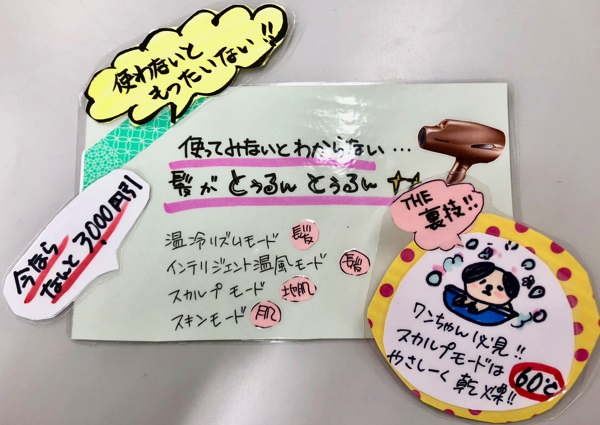 使わないと
もったいない!!
使ってみないとわからない…
髪がとぅるんとぅるん
温冷リズムモード 髪
インテリジェント温風モード 髪
スカルプモード 地肌
スキンモード 肌
今なら
なんと3,000円引
THE
裏技!!
ワンちゃん必見!!
スカルプモードは60℃
やさしーく乾燥!!